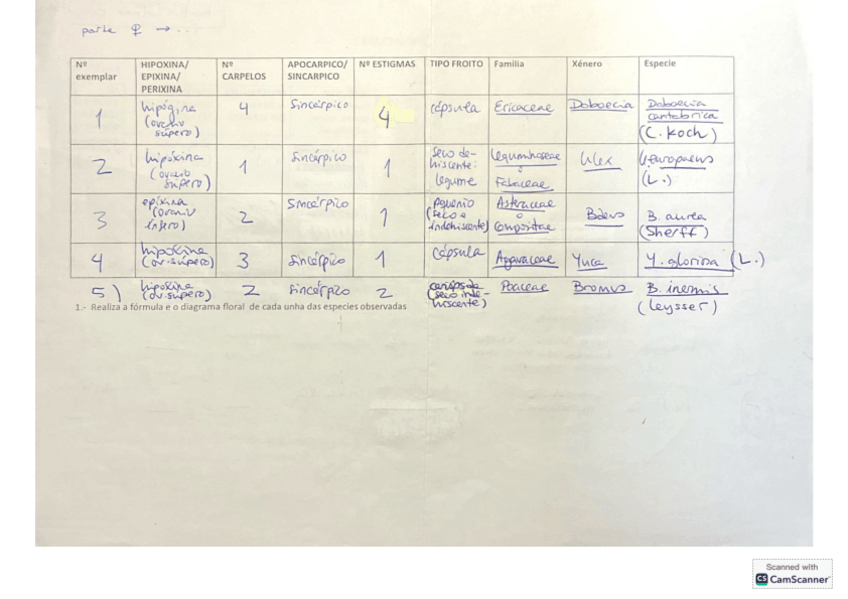 parte ♀ → ...
Nº exemplar
HIPOXINA/ EPIXINA/ PERIXINA
Nº CARPELOS
APOCARPICO/ SINCARPICO
Nº ESTIGMAS
TIPO FROITO
Familia
Xénero
Especie
1
hipógina (ovario súpero)
4
Sincárpico
4
cápsula
Ericaceae
Daboecia
Daboecia cantabrica (C. Koch)
2
hipóxina (ovario súpero)
1
Sincárpico
1
seco de- hiscente: legume
Leguminoseae o Fabaceae
Ulex
U. europaeus (L.)
3
epíxina (ovario ínfero)
2
Sincárpico
1
aquenio (seco e indehiscente)
Asteraceae o Compositae
Bidens
B. aurea (Sherff)
4
hipoxina (ov. súpero)
3
Sincárpico
1
Cápsula
Agavaceae
Yuca
Y. gloriosa (L.)
5)
hipoxina (ov. súpero)
2
Sincárpico
2
cariópside (seco inde- hiscente)
Poaceae
Bromus
B. inermis (Leysser)
1.- Realiza a fórmula e o diagrama floral de cada unha das especies observadas
Scanned with
CS CamScanner